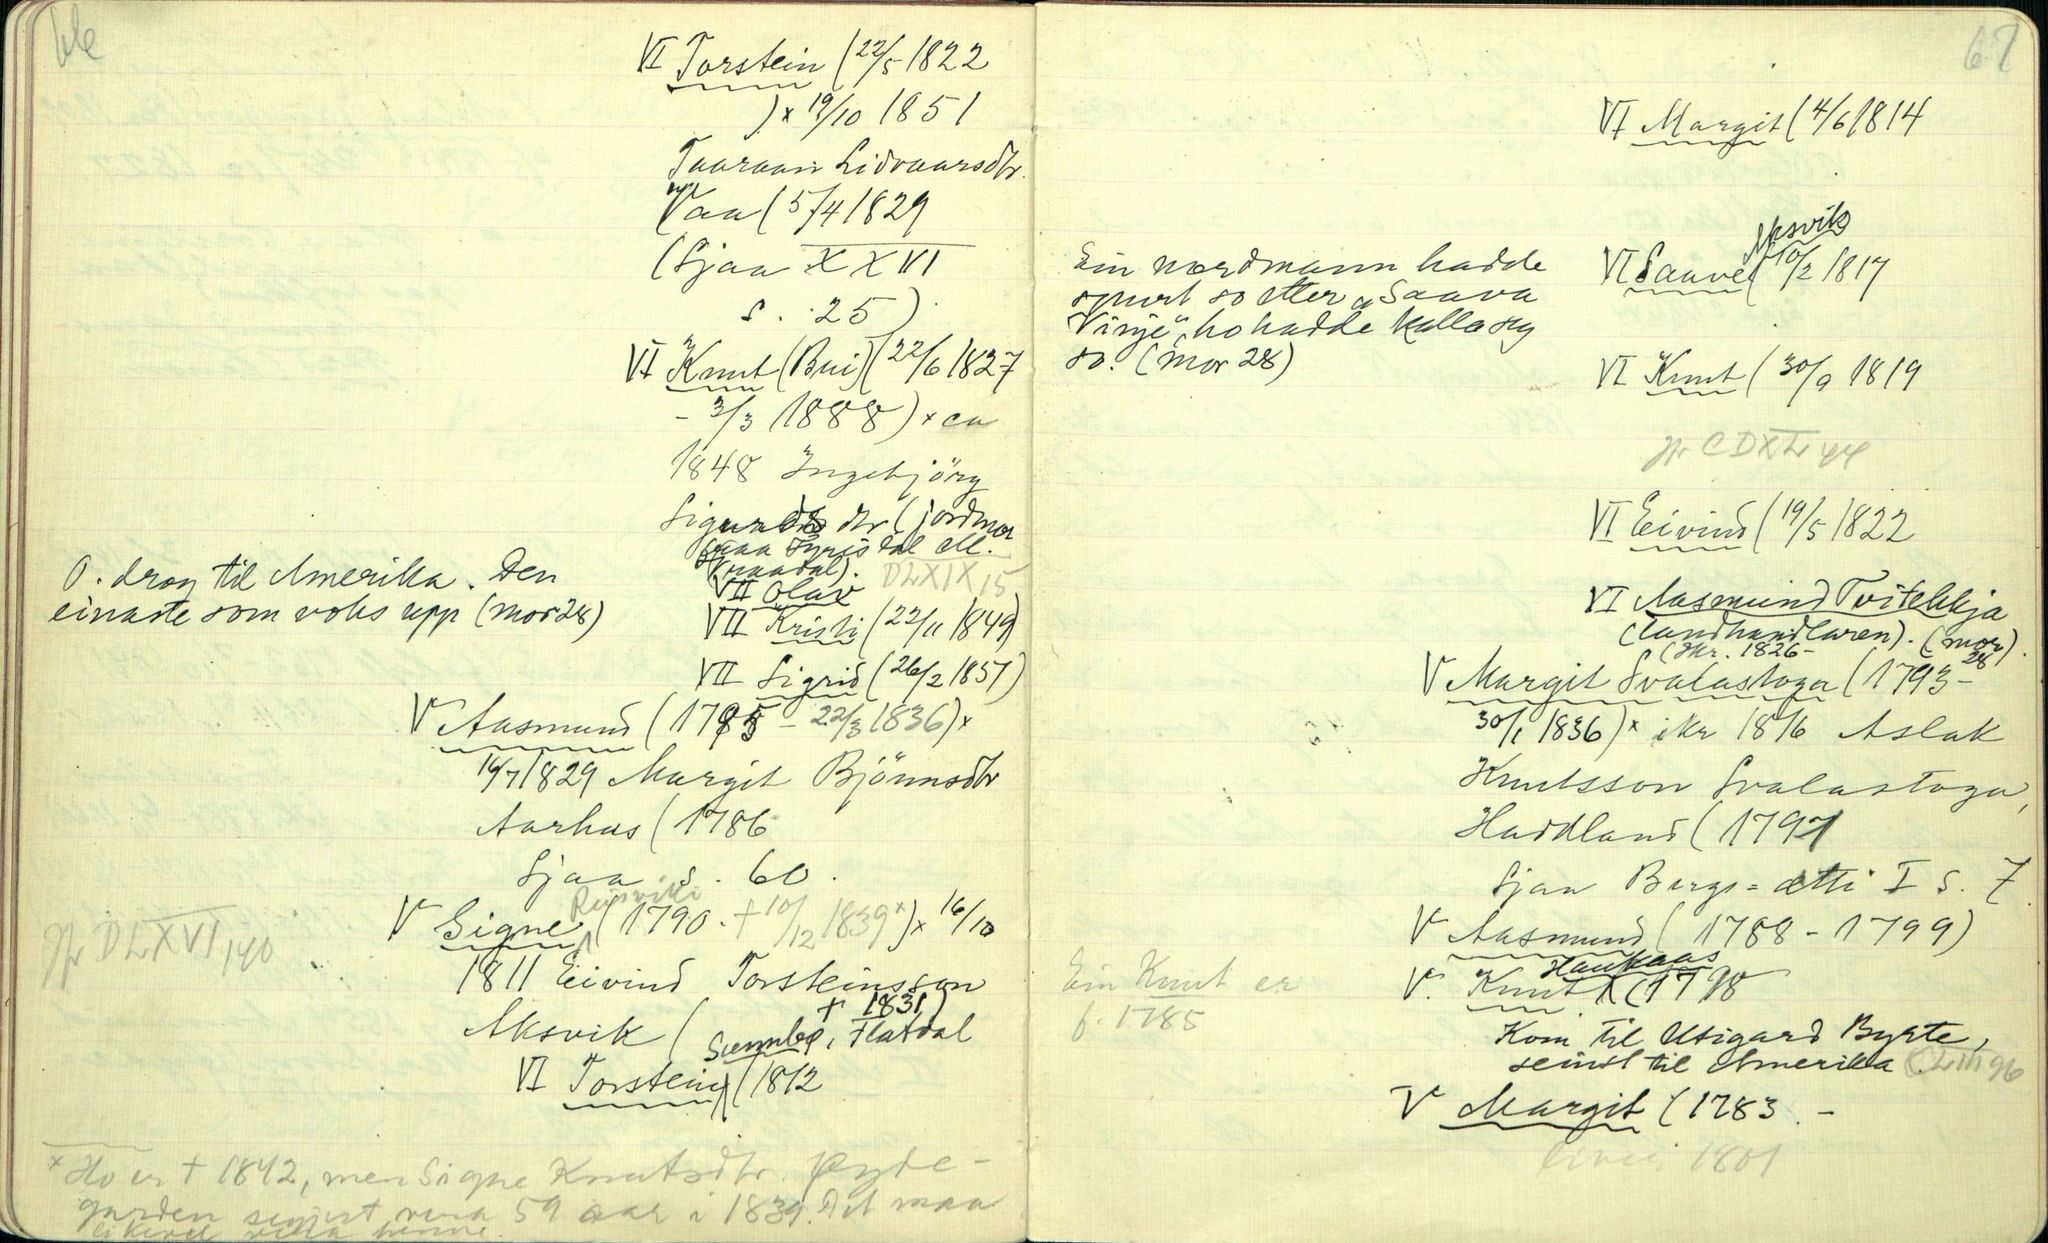 66
VI Torstein (22/5 1822
)× 19/10 1851
Taaraan Lidvaarsdtr.
Vaa (5/4 1829
(Sjaa XXVI
s. 25).
VI Knut (Bui) (22/6 1827
- 3/3 1888) × ca
1848 Ingebjörg
Sigurds dtr (jordmor
fraa Fyrisdal ell.
Vraadal). DLXIX, 15
VII Olav
O. drog til Amerika. Den
einaste som voks upp (mor 28)
VII Kristi (22/11 1849)
VII Sigrid (26/2 1851)
V Aasmund (1795 - 22/3 1836) ×
16/7 1829 Margit Bjönnsdtr
Aarhus (1786
Sjaa s. 60.
Reisviki
V Signe (1790 - † 10/12 1839 ×) × 16/10
Jfr DLXVI, 140
1811 Eivind Torsteinsson
Aksvik ( † 1831)
Sumbø, Flatdal
VI Torstein (1812
× Ho er † 1842, men Signe Knutsdtr. Øyde-
garden segjest vera 59 aar i 1839. Det maa
likevel vera henne.
67
VI Margit (4/6 1814
Aksvik
VI Saave (10/2 1817
Ein nordmann hadde
spurt so etter "Saava
Vinje", ho hadde kalla seg
so. (mor 28)
VI Knut (30/9 1819
Jfr CDXL, 44
VI Eivind (19/5 1822
VI Aasmund Tvitekkja
(landhandlaren). (mor 28).
(Ikr. 1826-
V Margit Svalastoga (1793-
30/1 1836) × ikr 1816 Aslak
Knutsson Svalastoga,
Haddland (1791
Sjaa Bergs=ætti I s. 7
V Aasmund (1788 - 1799)
Haukaas
V. Knut (1798
Ein Knut er
f. 1785
Kom til Utigard Byrte,
seinst til Amerika. CLIII 96
V Margit (1783 -
1801